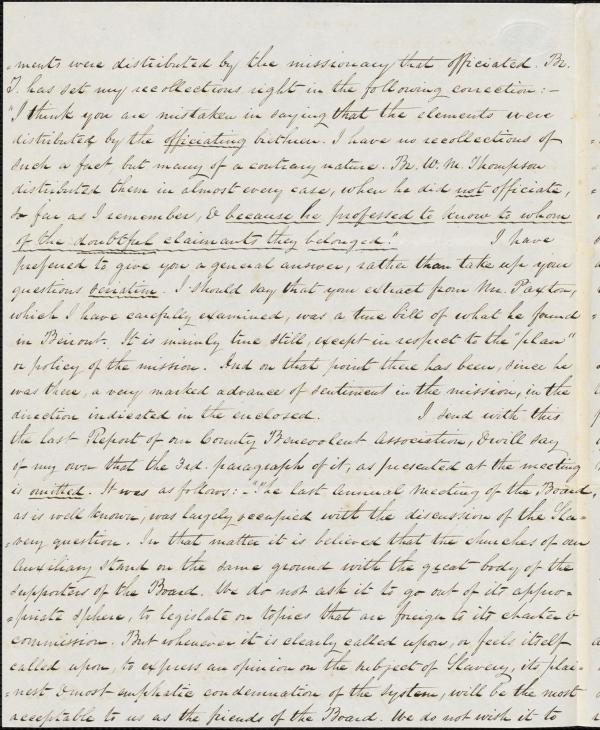 -ments were distributed by the missionary that officiated. Br.
T. has set my recollections right in the following correction:-
"I think you are mistaken in saying that the elements were
distributed by the officiating brethren. I have no recollections of
such a fact, but many of a contrary nature. Br. W. M. Thompson
distributed them in almost every case, when he did not officiate,
so far as I remember, & because he professed to know to whom
of the doubtful claimants they belonged." I have
preferred to give you a general answer, rather than take up your
questions seriatim. I should say that your extract from Mr. Paxton,
which I have carefully examined, was a true bill of what he found
in Beirout. It is mainly true still, except in respect to the "plan"
or policy of the mission. And on that point there has been, since he
was there, a very marked advance of sentiment in the mission, in the
direction indicated in the enclosed. I send with this
the last Report of our County Benevolent Association, & will say
of my own that the 3rd. paragraph of it, as presented at the meeting
is omitted. It was as follows:- "The last Annual Meeting of the Board,
as is well known, was largely occupied with the discussion of the Sla-
-very question. In that matter it is believed that the churches of our
Auxiliary stand on the same ground with the great body of the
supporters of the Board. We do not ask it to go out of its appro-
-priate sphere, to legislate on topics that are foreign to its charter &
commission. But whenever it is clearly called upon, or feels itself
called upon, to express an opinion on the subject of Slavery, its plai-
-nest & most emphatic condemnation of the system, will be the most
acceptable to us as the friends of the Board. We do not wish it to